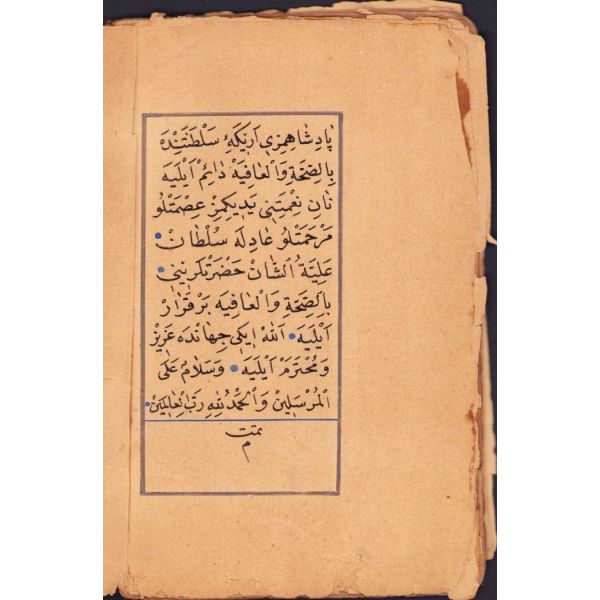 پَادِشَاهِمِزِي اَرِيكَهٔ سَلْطَنَتِنْدَه
بِالصِّحَّةِ وَالْعَافِيَهْ دَائِمْ اَيْلَيَه
نَانِ نِعْمَتِنِي يَدِيكِمِزْ عِصْمَتْلُو
مَرْحَمَتْلُو عَادِلَه سُلْطَانْ
عَلِيَّةُ الشَّانْ حَضْرَتْلَرِينِي
بِالصِّحَّةِ وَالْعَافِيَه بَرْقَرَارْ
اَيْلَيَه اَللهْ اِيكِي جِهَانْدَه عَزِيزْ
وَمُحْتَرَمْ اَيْلَيَه وَسَلَامٌ عَلَى
الْمُرْسَلِينَ وَالْحَمْدُ لِلهِ رَبِّ الْعَالَمِينَ
تمت
م